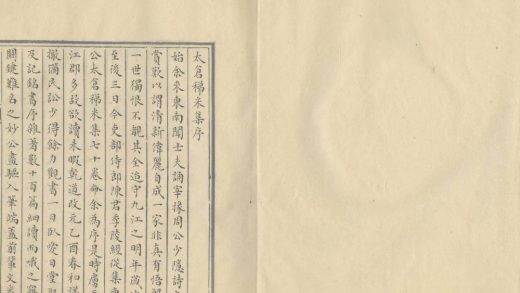 太倉稊米集序
始余來東南聞士夫誦宰掾周公少隱詩
賞歎以謂清新偉麗自成一家非真有悟
一世獨恨不覩其全迨守九江之明年歲
至後三日今吏部侍郎陳君季陵
公太倉稊米集七十卷命余為序是時
江郡多故欲讀未暇乾道改元乙酉春和
撤備民訟少得餘力觀書一日卧愛日堂
及記銘書序雜著數十百篇細讀而哦之
關鍵難名之妙公盡驅入筆端蓋前輩文